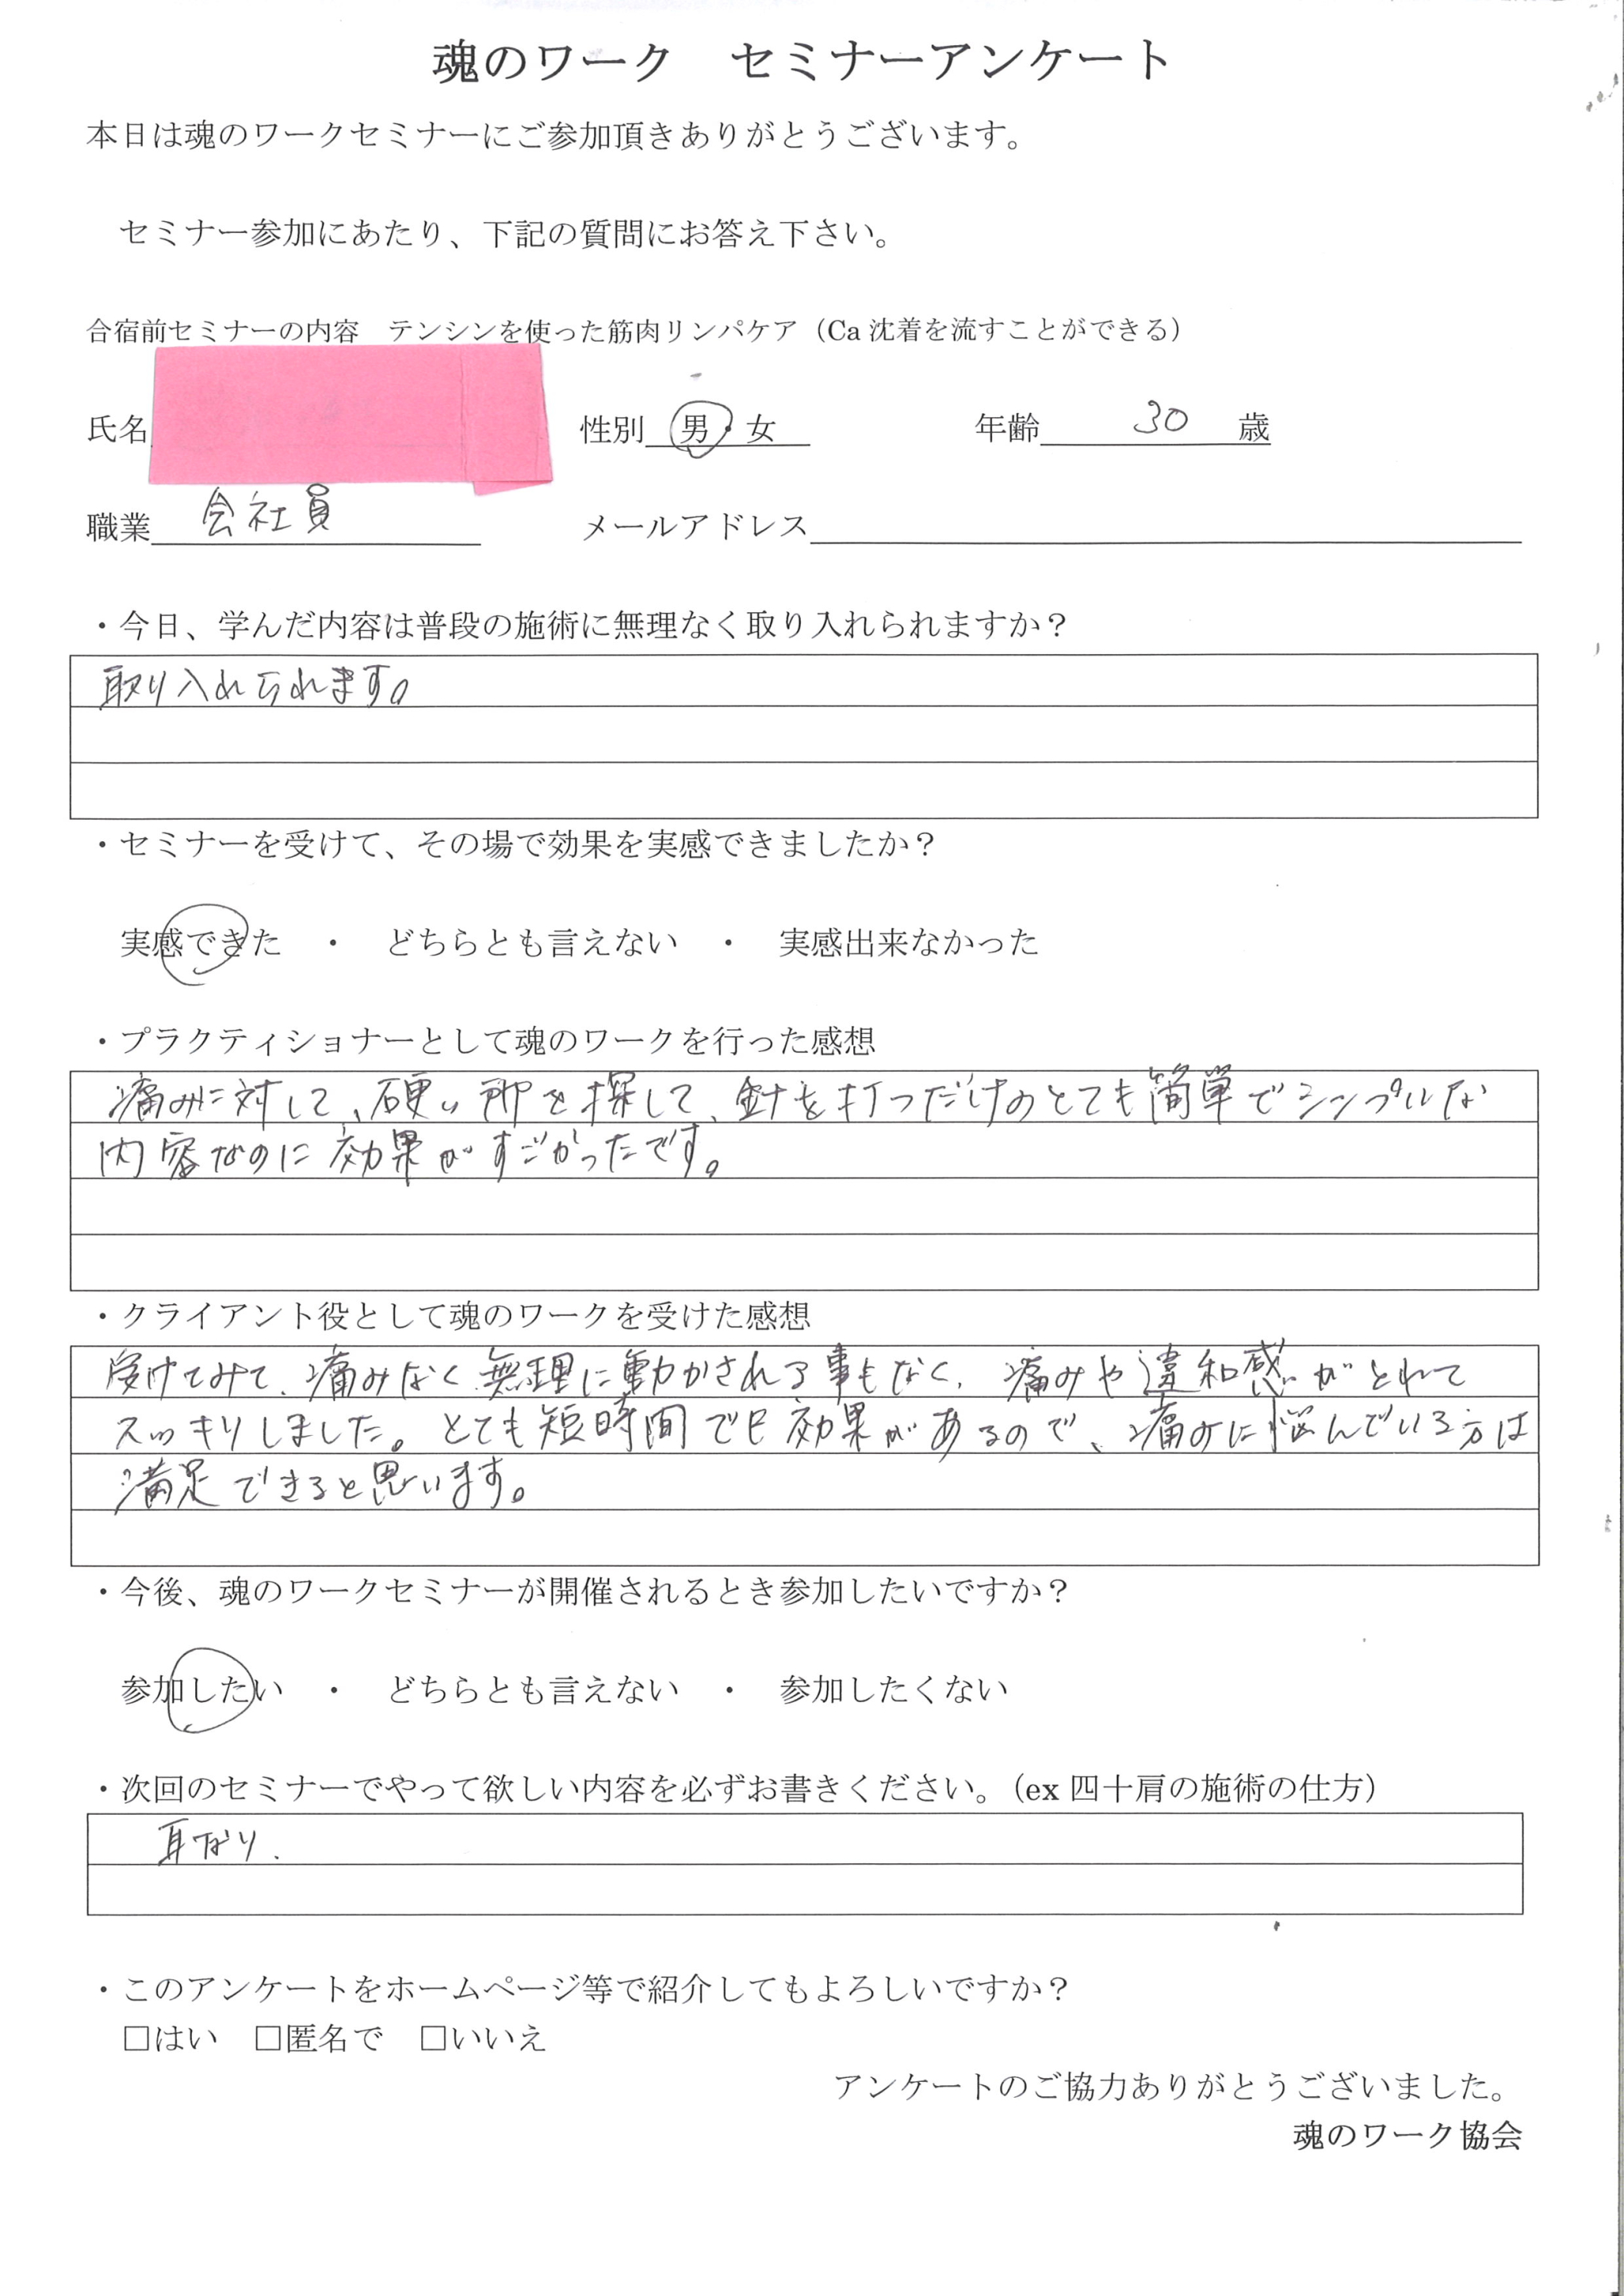 魂のワーク　セミナーアンケート
本日は魂のワークセミナーにご参加頂きありがとうございます。
セミナー参加にあたり、下記の質問にお答え下さい。
合宿前セミナーの内容　テンシンを使った筋肉リンパケア（Ca 沈着を流すことができる）
氏名　性別　男・女　年齢　30　歳
職業　会社員　メールアドレス
・今日、学んだ内容は普段の施術に無理なく取り入れられますか？
取り入れられます。
・セミナーを受けて、その場で効果を実感できましたか？
実感できた　・　どちらとも言えない　・　実感出来なかった
・プラクティショナーとして魂のワークを行った感想
痛みに対して、硬い所を探して、針を打つだけのとても簡単でシンプルな
内容なのに効果がすごかったです。
・クライアント役として魂のワークを受けた感想
受けてみて、痛みなく無理に動かされる事もなく、痛みや違和感がとれて
スッキリしました。とても短時間でも効果があるので、痛みに悩んでいる方は
満足できると思います。
・今後、魂のワークセミナーが開催されるとき参加したいですか？
参加したい　・　どちらとも言えない　・　参加したくない
・次回のセミナーでやって欲しい内容を必ずお書きください。（ex 四十肩の施術の仕方）
耳なり.
・このアンケートをホームページ等で紹介してもよろしいですか？
□はい　□匿名で　□いいえ
アンケートのご協力ありがとうございました。
魂のワーク協会